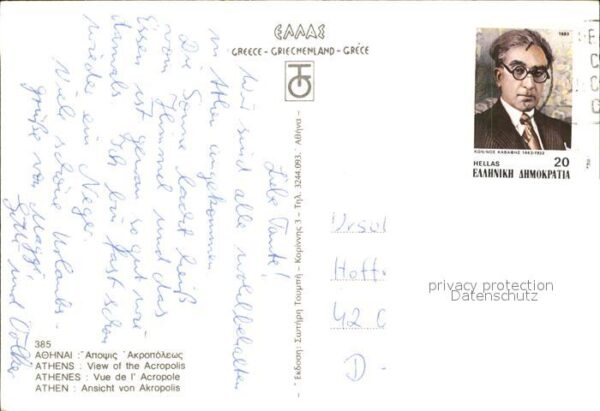 ΕΛΛΑΣ
GREECE - GRIECHENLAND - GRÈCE
Liebe Tante!
Wir sind alle wohlbehalten
in Athen angekommen
Die Sonne lacht heiß
vom Himmel und das
Essen ist genau so gut wie
damals. Ich bin fast schon
wieder ein Neger.
Viele schöne Urlaubs-
grüße von Maggi
und Volker
385
ΑΘΗΝΑΙ : Ἄποψις Ἀκροπόλεως
ATHENS : View of the Acropolis
ATHENES : Vue de l' Acropole
ATHEN : Ansicht von Akropolis
Ἔκδοση: Σωτήρη Τουμπή - Κορίννης 3 - Τηλ. 3244.093. Ἀθήνα -
1983
ΚΩΝ/ΝΟΣ ΚΑΒΑΦΗΣ 1863-1933
HELLAS 20
ΕΛΛΗΝΙΚΗ ΔΗΜΟΚΡΑΤΙΑ
Ursul
Hoff
42 C
D-
privacy protection
Datenschutz